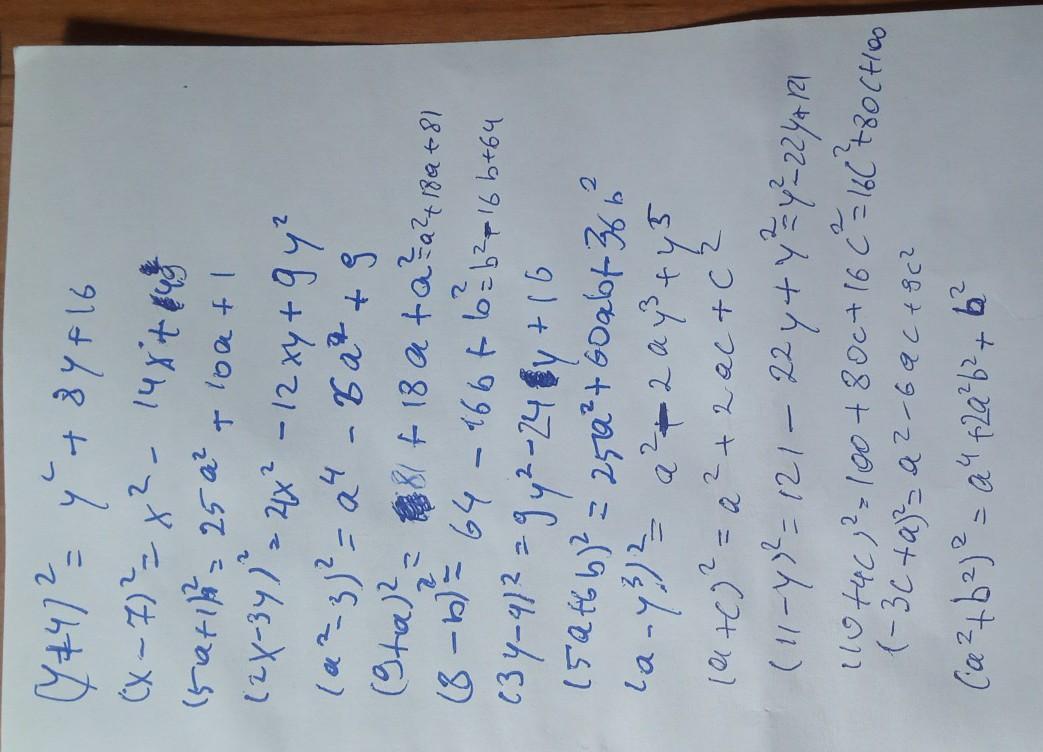 (y+4)² = y² + 8y + 16
(x-7)² = x² - 14x + 49
(5a+1)² = 25a² + 10a + 1
(2x-3y)² = 4x² - 12xy + 9y²
(a²-3)² = a⁴ - 6a² + 9
(9+a)² = 81 + 18a + a² = a² + 18a + 81
(8-b)² = 64 - 16b + b² = b² - 16b + 64
(3y-4)² = 9y² - 24y + 16
(5a+6b)² = 25a² + 60ab + 36b²
(a-y³)² = a² - 2ay³ + y⁵
(a+c)² = a² + 2ac + c²
(11-y)² = 121 - 22y + y² = y² - 22y + 121
(10+4c)² = 100 + 80c + 16c² = 16c² + 80c + 100
(-3c+a)² = a² - 6ac + 9c²
(a²+b²)² = a⁴ + 2a²b² + b²